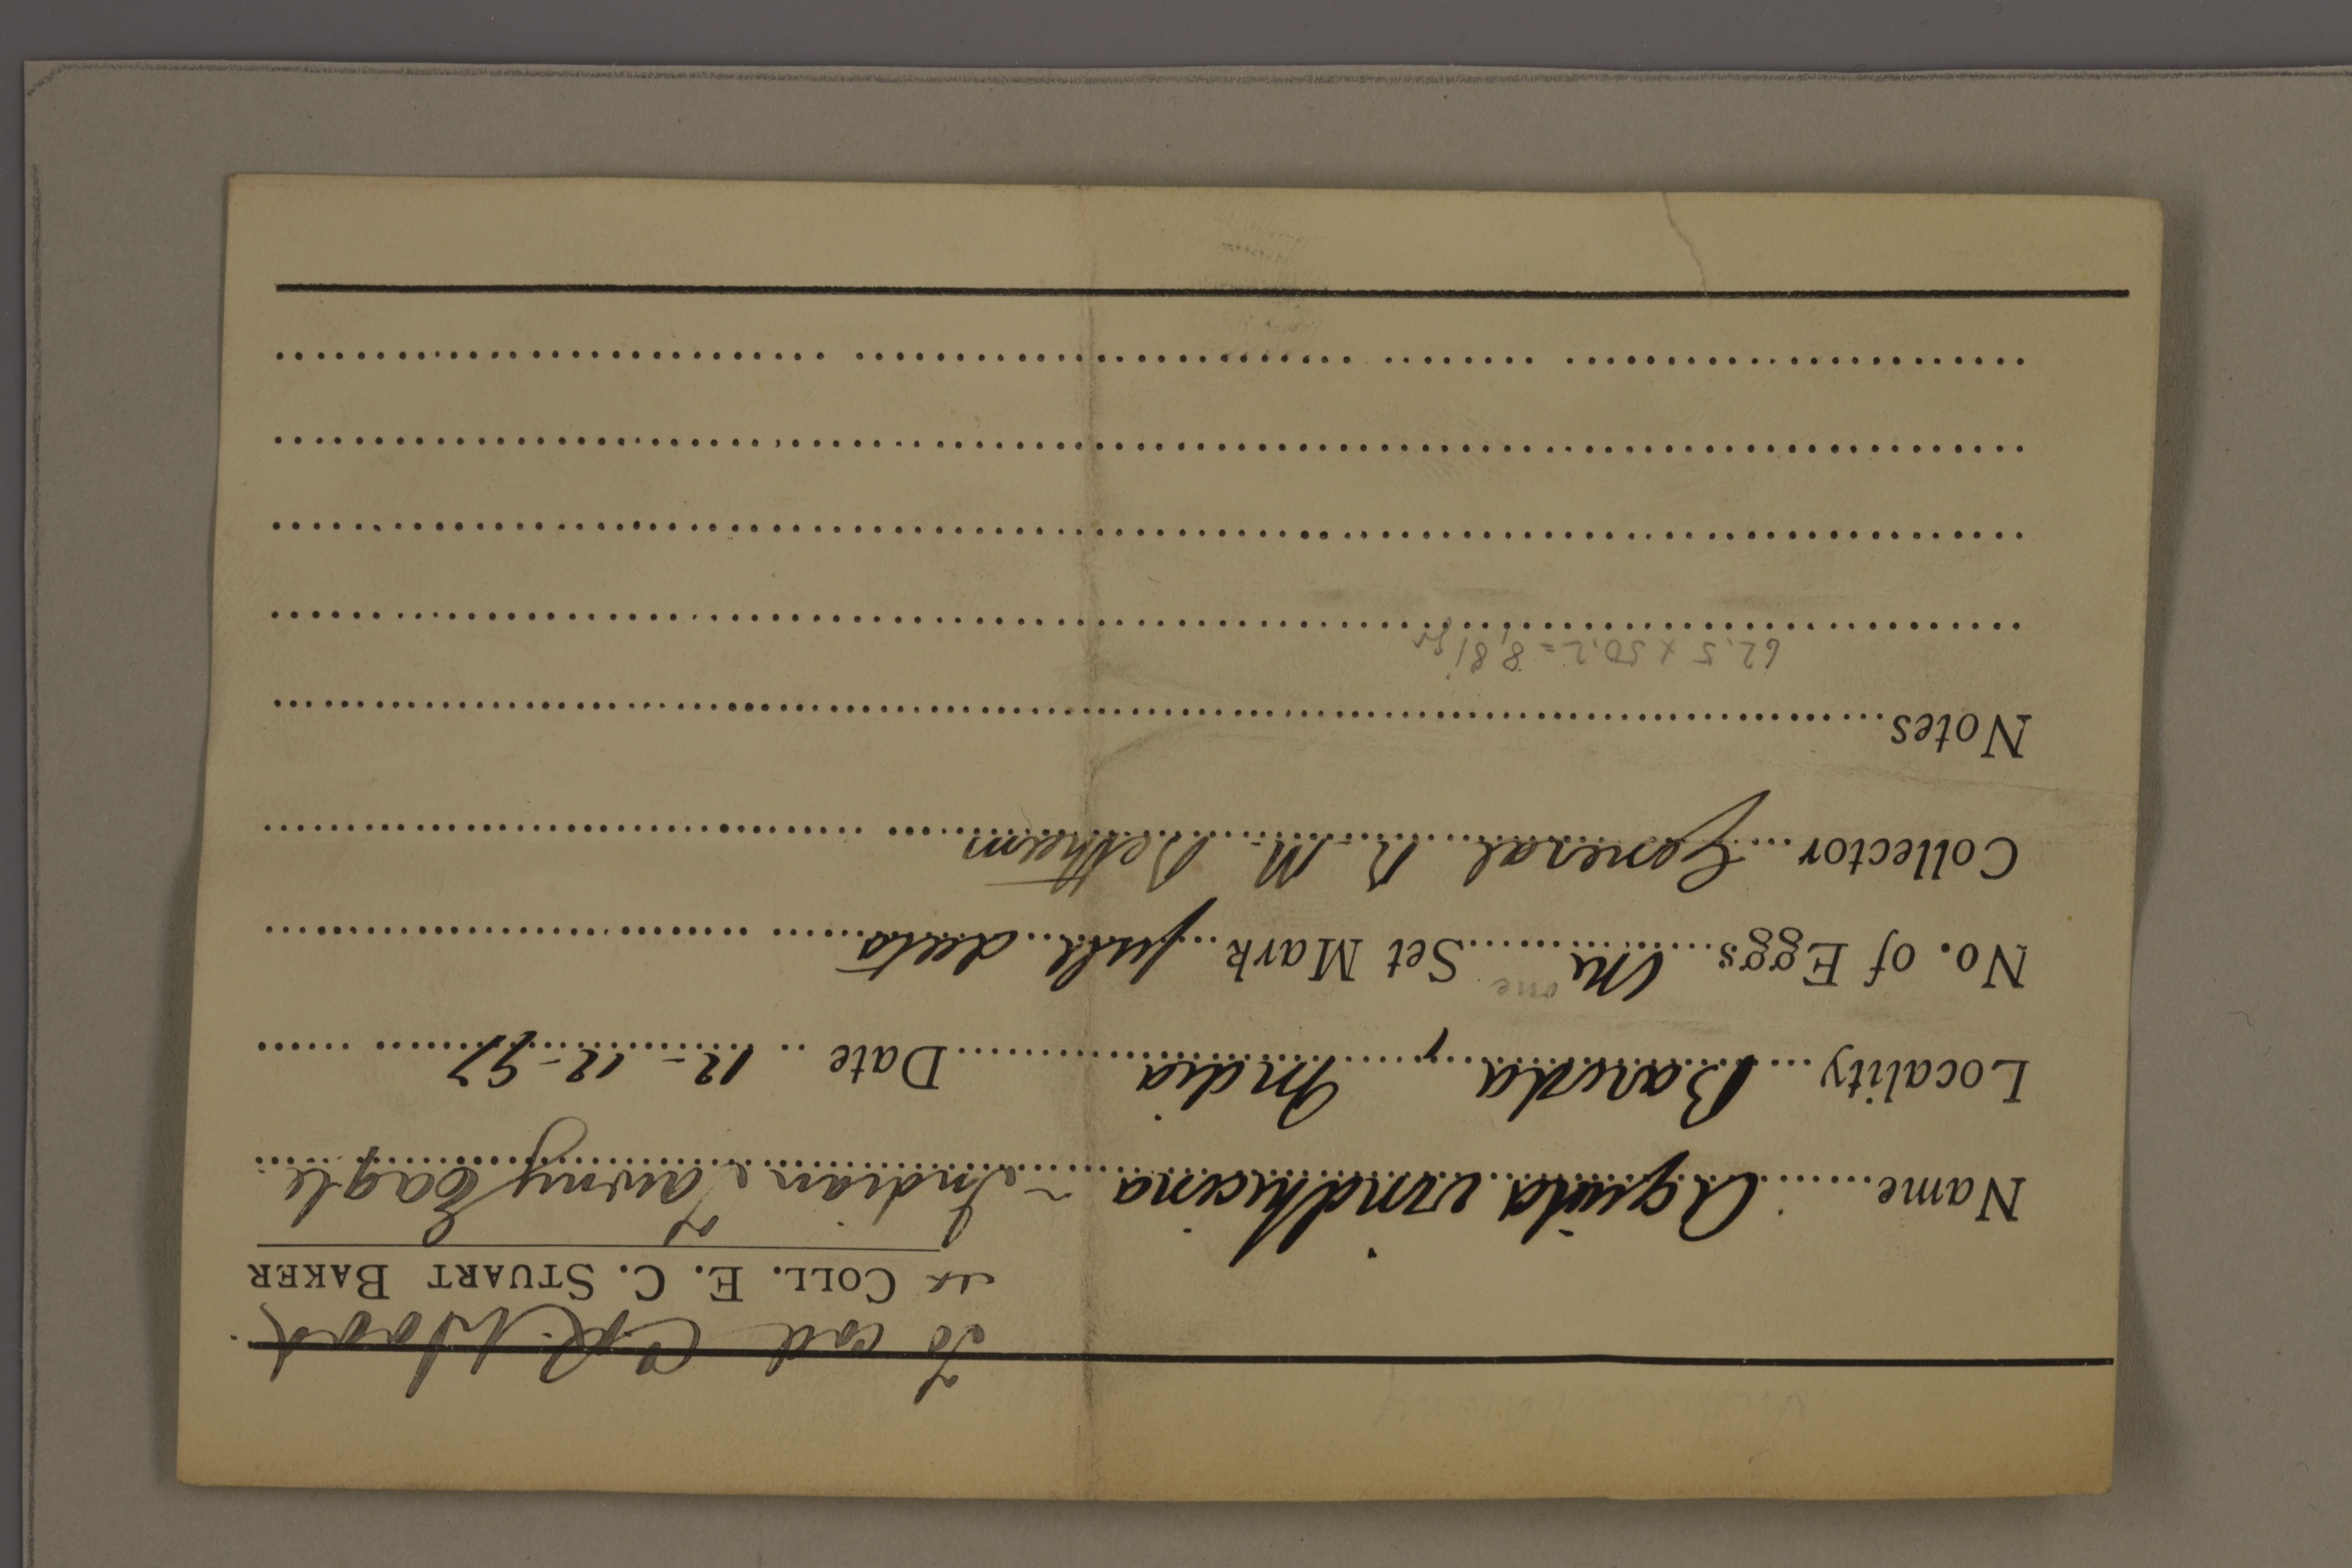 To coll C.R. Wood
ex COLL. E. C. STUART BAKER
Name Aquila vindhiana Indian Tawny Eagle
Locality Baroda, India Date 12-12-97
No. of Eggs one Set Mark full data
Collector General R. M. Betham
Notes
62.5 x 50.2 = 8,81 gr